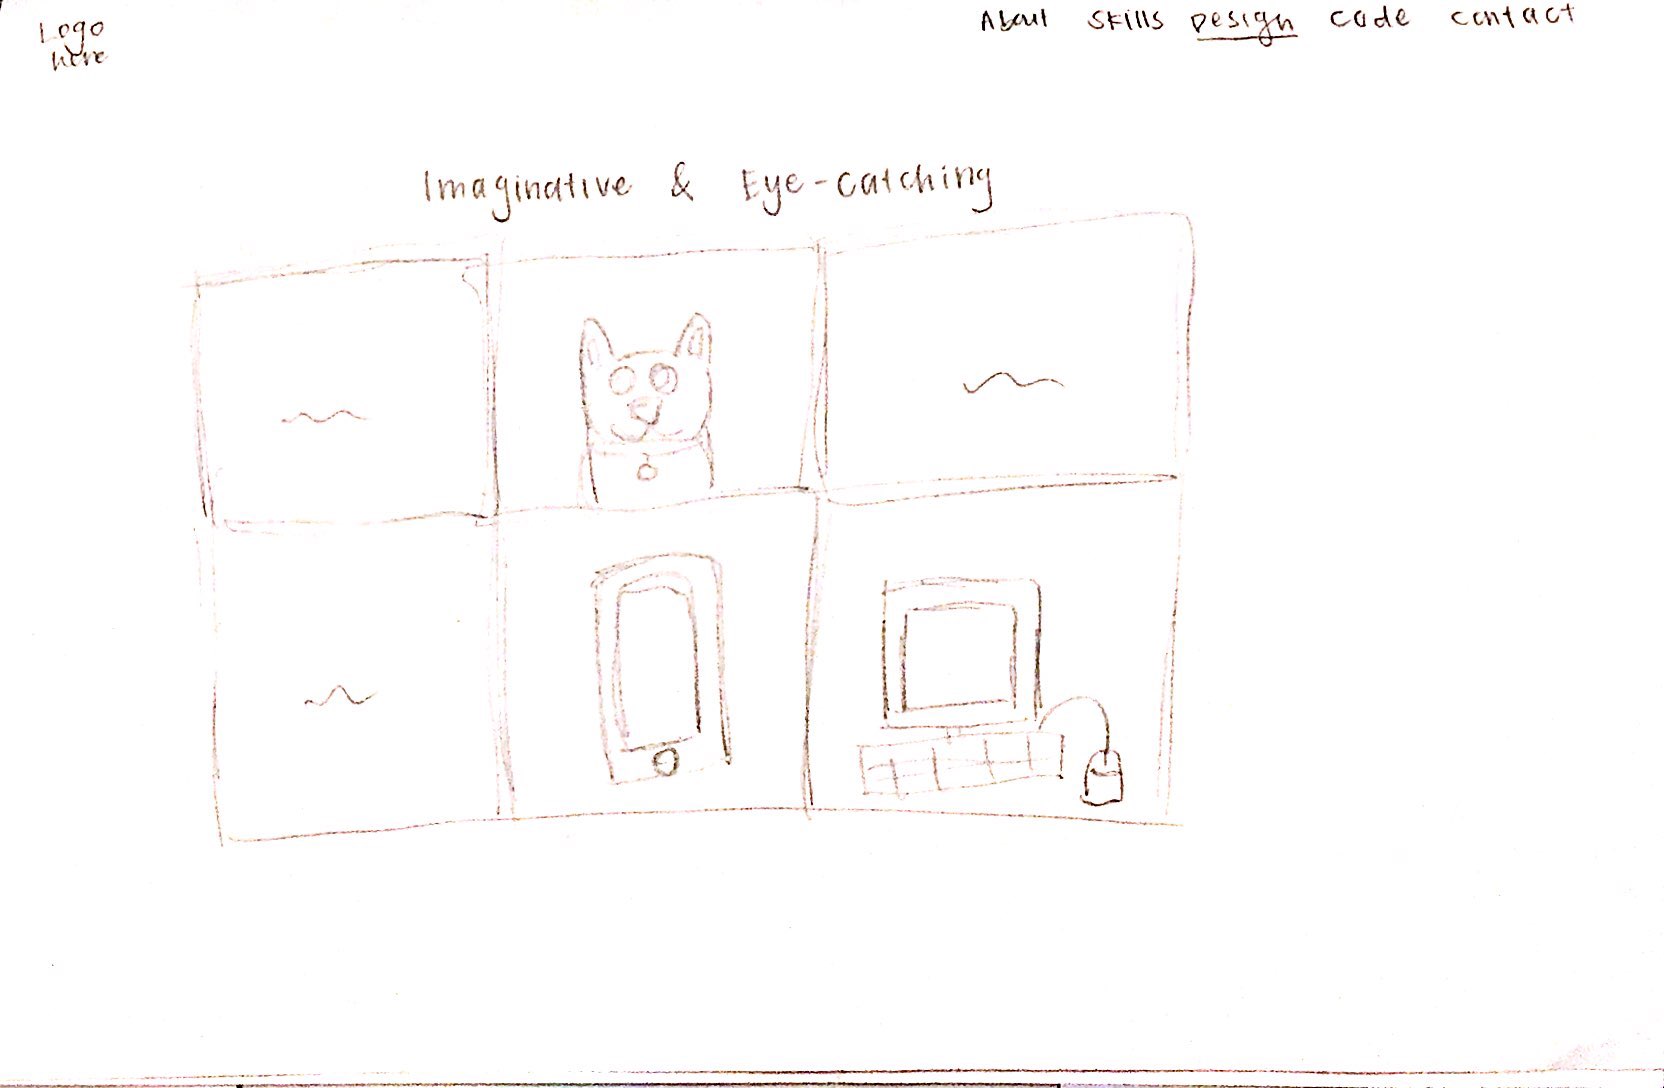 Logo
here
About Skills Design Code Contact
Imaginative & Eye-catching